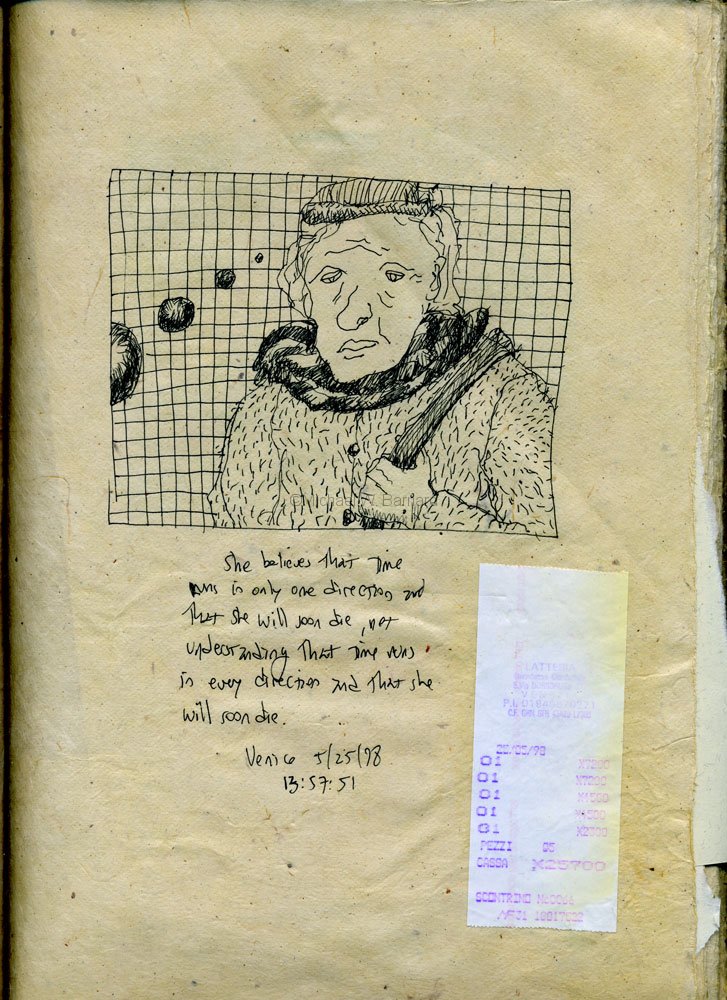 © Michael V. Barnard
She believes that time
runs in only one direction and
that she will soon die, not
understanding that time runs
in every direction and that she
will soon die.
Venice 5/25/98
13:57:51
LATTERIA
P.I.
25/05/98
01 X7200
01 X1500
01
01 X2300
PEZZI 05
CASSA X25700
SCONTRINO